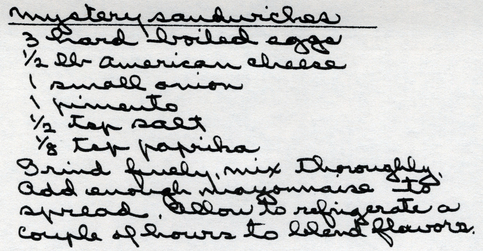 mystery sandwiches
3 hard boiled eggs
1/2 lb american cheese
1 small onion
1 pimento
1/2 tsp salt
1/8 tsp paprika
Grind finely, mix thoroughly.
Add enough mayonnaise to
spread. Allow to refrigerate a
couple of hours to blend flavors.